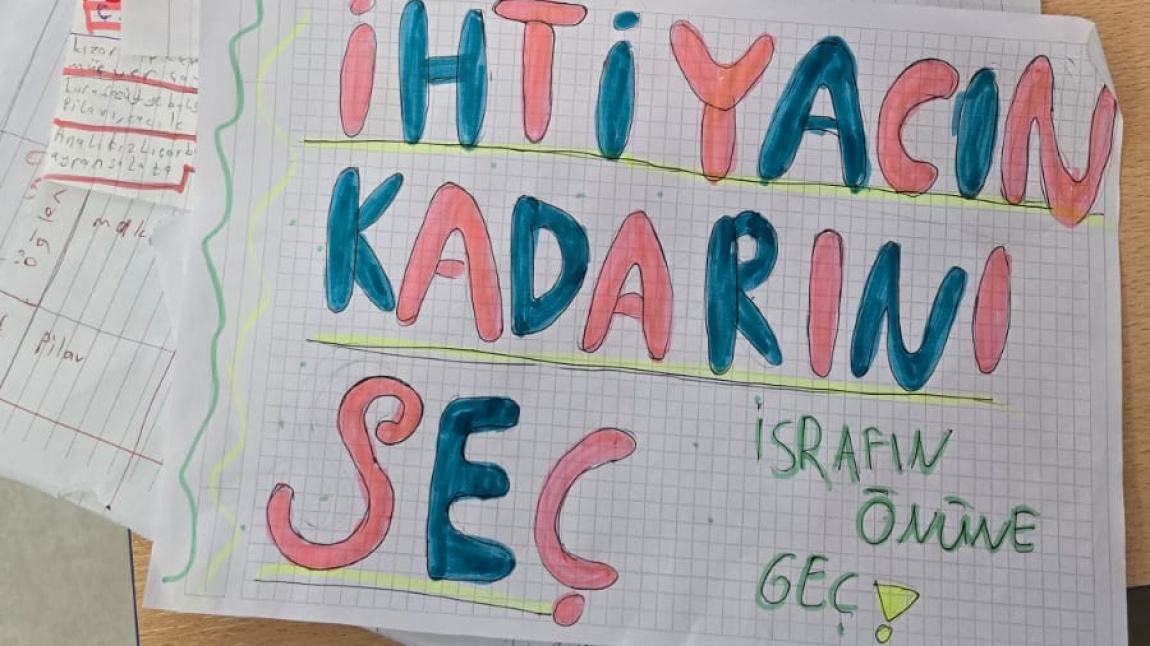 İHTİYACIN
KADARINI
SEÇ
İSRAFIN
ÖNÜNE
GEÇ!
Pilav